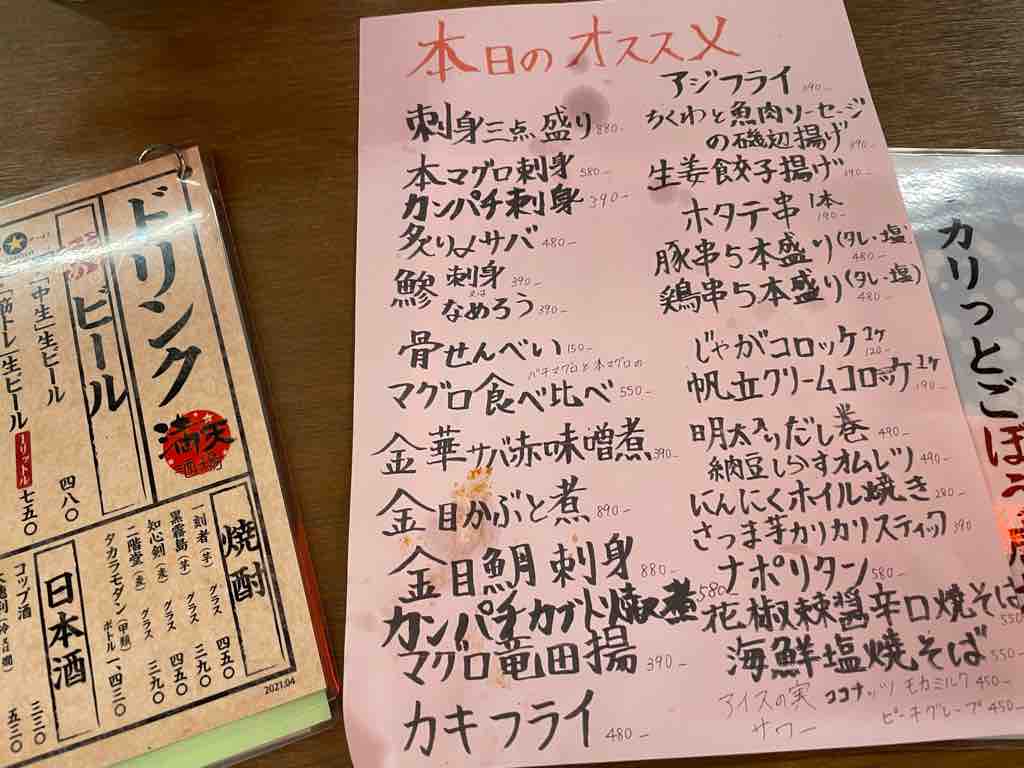 本日のオススメ
刺身三点盛り 880-
本マグロ刺身 580-
カンパチ刺身 390-
炙り〆サバ 480-
鰺 刺身 390-
又は
なめろう 390-
骨せんべい 150-
バチマグロと本マグロの
マグロ食べ比べ 550-
金華サバ赤味噌煮 390-
金目かぶと煮 890-
金目鯛刺身 880-
カンパチカブト焼又煮 580
マグロ竜田揚 390-
カキフライ 480-
アジフライ 390-
ちくわと魚肉ソーセージ
の磯辺揚げ 390-
生姜餃子揚げ 190-
ホタテ串 1本 190-
豚串5本盛り(タレ・塩) 480-
鶏串5本盛り(タレ・塩) 480-
じゃがコロッケ 1ヶ 120-
帆立クリームコロッケ 1ヶ 190-
明太入りだし巻 490-
納豆しらすオムレツ 490-
にんにくホイル焼き 280-
さつま芋カリカリスティック 390
ナポリタン 580-
花椒辣醤辛口焼そば 550
海鮮塩焼そば 550-
アイスの実 ココナッツモカミルク 450-
サワー ピーチグレープ 450-
ドリンク
満天
酒場
ビール
「中生」生ビール 四八〇
生ビール 1リットル 七五〇
焼酎
一刻者(芋) グラス 四五〇
黒霧島(芋) グラス 三九〇
知心剣(麦) グラス 四五〇
二階堂(麦) グラス 三九〇
タカラモダン(甲類) ボトル 一、四三〇
日本酒
コップ酒 三三〇
五三〇
2021.04
カリっとごぼう